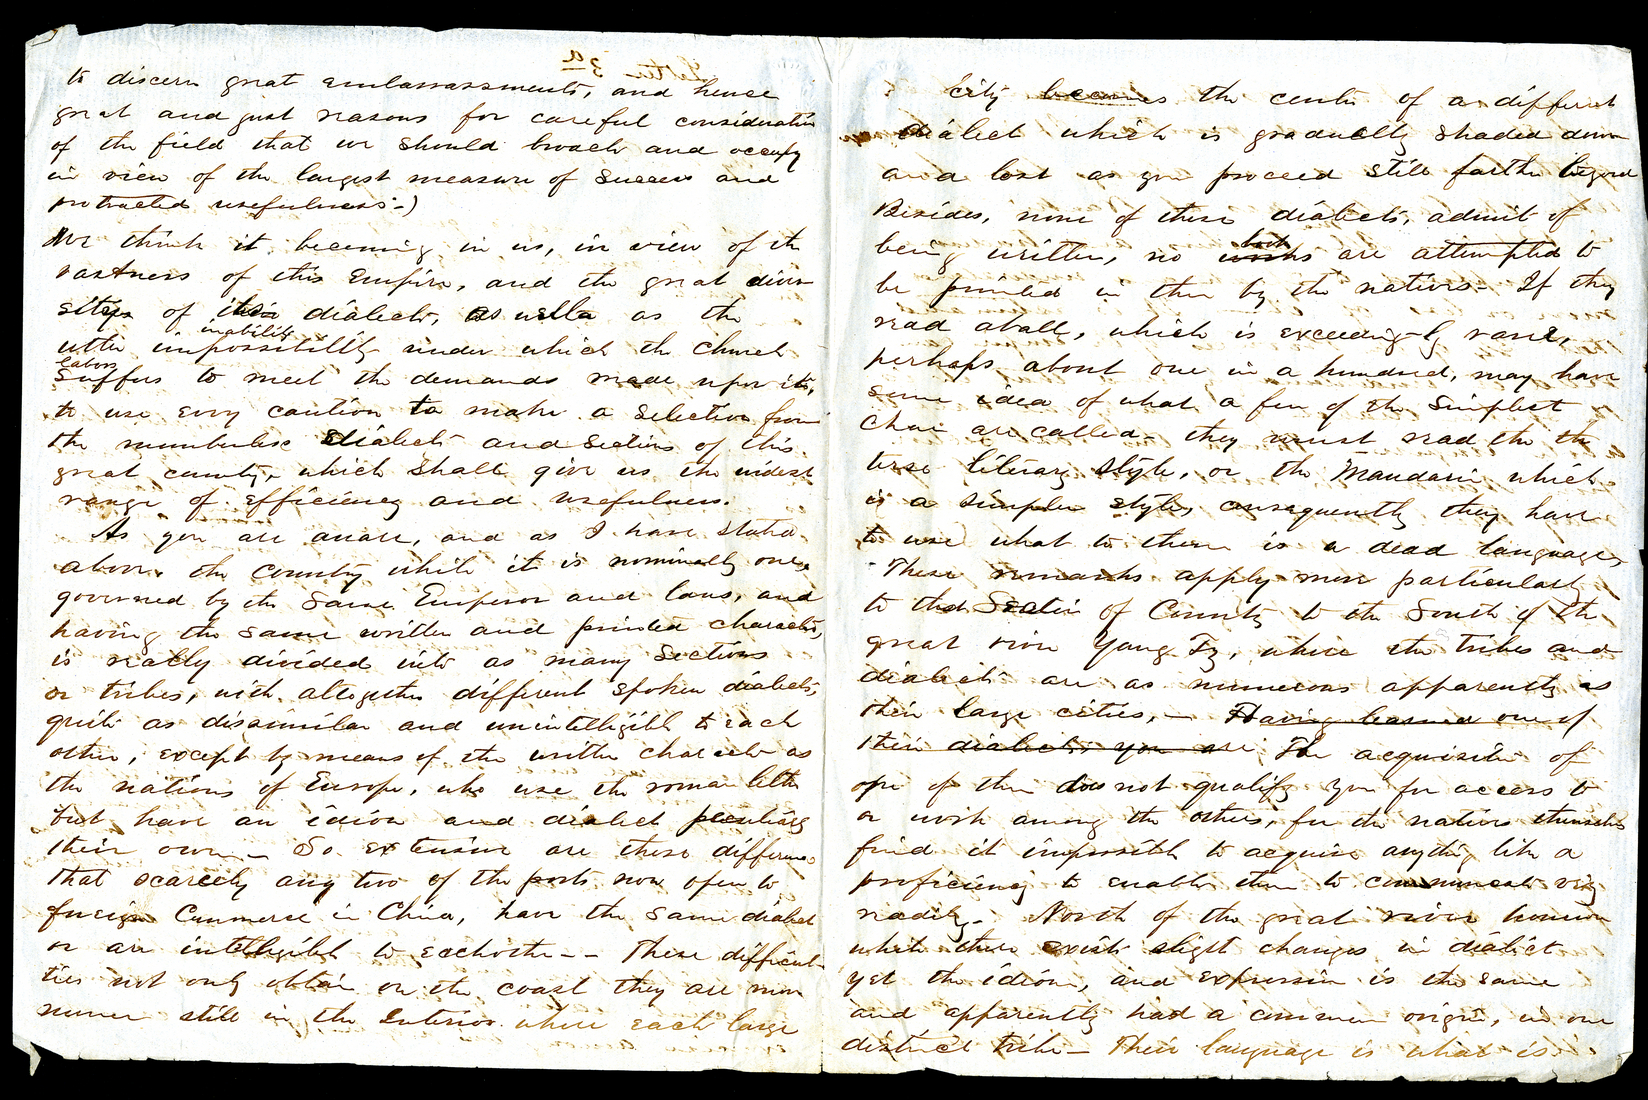 to discern great embarrassments, and hence
great and just reasons for careful consideration
of the field that we should broach and occupy
in view of the largest measure of success and
protracted usefulness.)
We think it becoming in us, in view of the
vastness of this Empire, and the great diver
sitys of its dialects, as wella as the
inability
utter impossibility under which the church
labors
suffers to meet the demands made upon it,
to use evry caution to make a selection from
the numberless dialects and sections of this
great county, which shall give us the widest
range of efficiency and usefulness.
As you are aware, and as I have stated
above, the county while it is nominally one,
governed by the same Emperor and laws, and
having the same written and printed character,
is really divided into as many sections
or tribes, with altogether different spoken dialects,
quite as dissimilar and unintelligible to each
other, except by means of the written character as
the nations of Europe, who use the roman letter
but have an idiom and dialect peculiarly
their own — So extensive are these differences
that scarcely any two of the ports now open to
foreign Commerce in China, have the same dialect
or are intelligible to eachother — These difficul-
ties not only obtain on the coast they are more
numer still in the Interior where each large
Letter 3d
City becomes the center of a different
dialect which is gradually shaded down
and lost as you proceed still farther beyond
Besides, none of these dialects, admit of
book
being written, no works are attempted to
be printed in them by the natives. If they
read atall, which is exceedingly rare,
perhaps about one in a hundred, may have
some idea of what a few of the simplest
char are called — they must read the the
terse literary style, or the Mandarin which
is a simpler style, consequently they have
to use what to them is a dead language,
These remarks apply more particularly
to that Section of County to the South of the
great river Yang Tz, where the tribes and
dialects are as numerous apparently as
their large cities, — Having learned one of
their dialects you are The acquisition of
one of them does not qualify you for access to
or work among the others, for the natives themselves
find it impossible to acquire anything like a
proficiency to enable them to communicate very
readily. North of the great river however
while there exists slight changes in dialect
yet the idiom, and expression is the same
and apparently had a common origin, in one
distinct tribe — Their language is what is